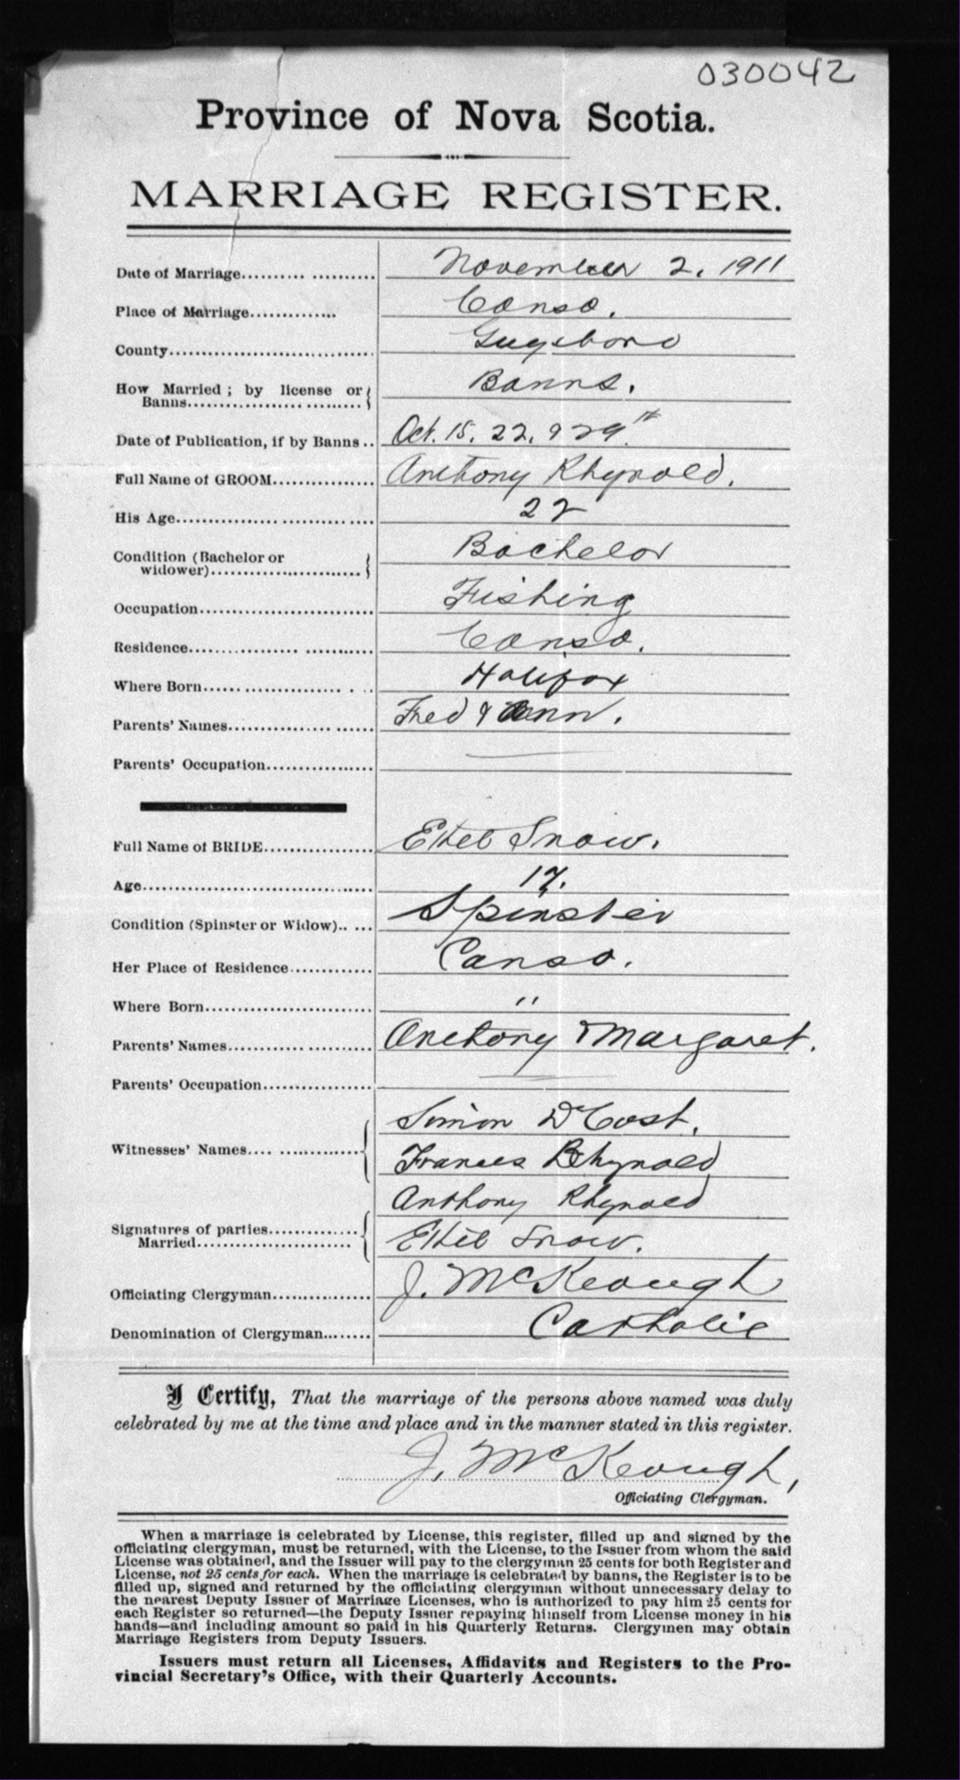 030042
Province of Nova Scotia.
MARRIAGE REGISTER.
Date of Marriage.......... ........... November 2, 1911
Place of Marriage.............. Canso.
County................................. Guysboro
How Married ; by license or Banns.
Banns............................
Date of Publication, if by Banns .. Oct. 15, 22, & 29th.
Full Name of GROOM................ Anthony Rhynold.
His Age................................ 22
Condition (Bachelor or Bachelor
widower)............................
Occupation............................ Fishing
Residence................. ........... Canso.
Where Born....................... . .. Halifax
Parents' Names....................... Fred & Ann.
Parents' Occupation.................
Full Name of BRIDE................. Ethel Snow.
Age..................................... 17.
Condition (Spinster or Widow).. ... Spinster
Her Place of Residence............. Canso.
Where Born........................... "
Parents' Names....................... Anthony & Margaret.
Parents' Occupation.................
Simon D'Cost.
Witnesses' Names.... ...............
Frances Rhynold
Anthony Rhynold
Signatures of parties..............
Married......................... Ethel Snow.
Officiating Clergyman............... J. McKeough
Denomination of Clergyman........ Catholic
I Certify, That the marriage of the persons above named was duly
celebrated by me at the time and place and in the manner stated in this register.
J. McKeough,
Officiating Clergyman.
When a marriage is celebrated by License, this register, filled up and signed by the
officiating clergyman, must be returned, with the License, to the Issuer from whom the said
License was obtained, and the Issuer will pay to the clergyman 25 cents for both Register and
License, not 25 cents for each. When the marriage is celebrated by banns, the Register is to be
filled up, signed and returned by the officiating clergyman without unnecessary delay to
the nearest Deputy Issuer of Marriage Licenses, who is authorized to pay him 25 cents for
each Register so returned—the Deputy Issuer repaying himself from License money in his
hands—and including amount so paid in his Quarterly Returns. Clergymen may obtain
Marriage Registers from Deputy Issuers.
Issuers must return all Licenses, Affidavits and Registers to the Pro-
vincial Secretary's Office, with their Quarterly Accounts.